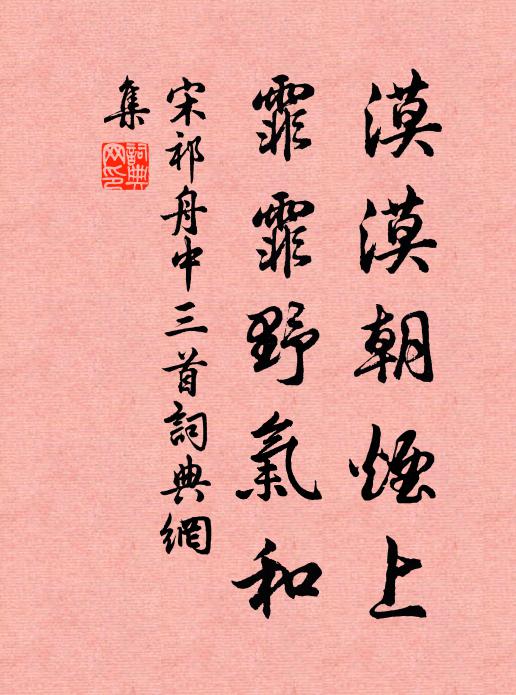 漠漠朝煙上
霏霏野氣和
宋祁舟中三首詞典網
集
詞典網印